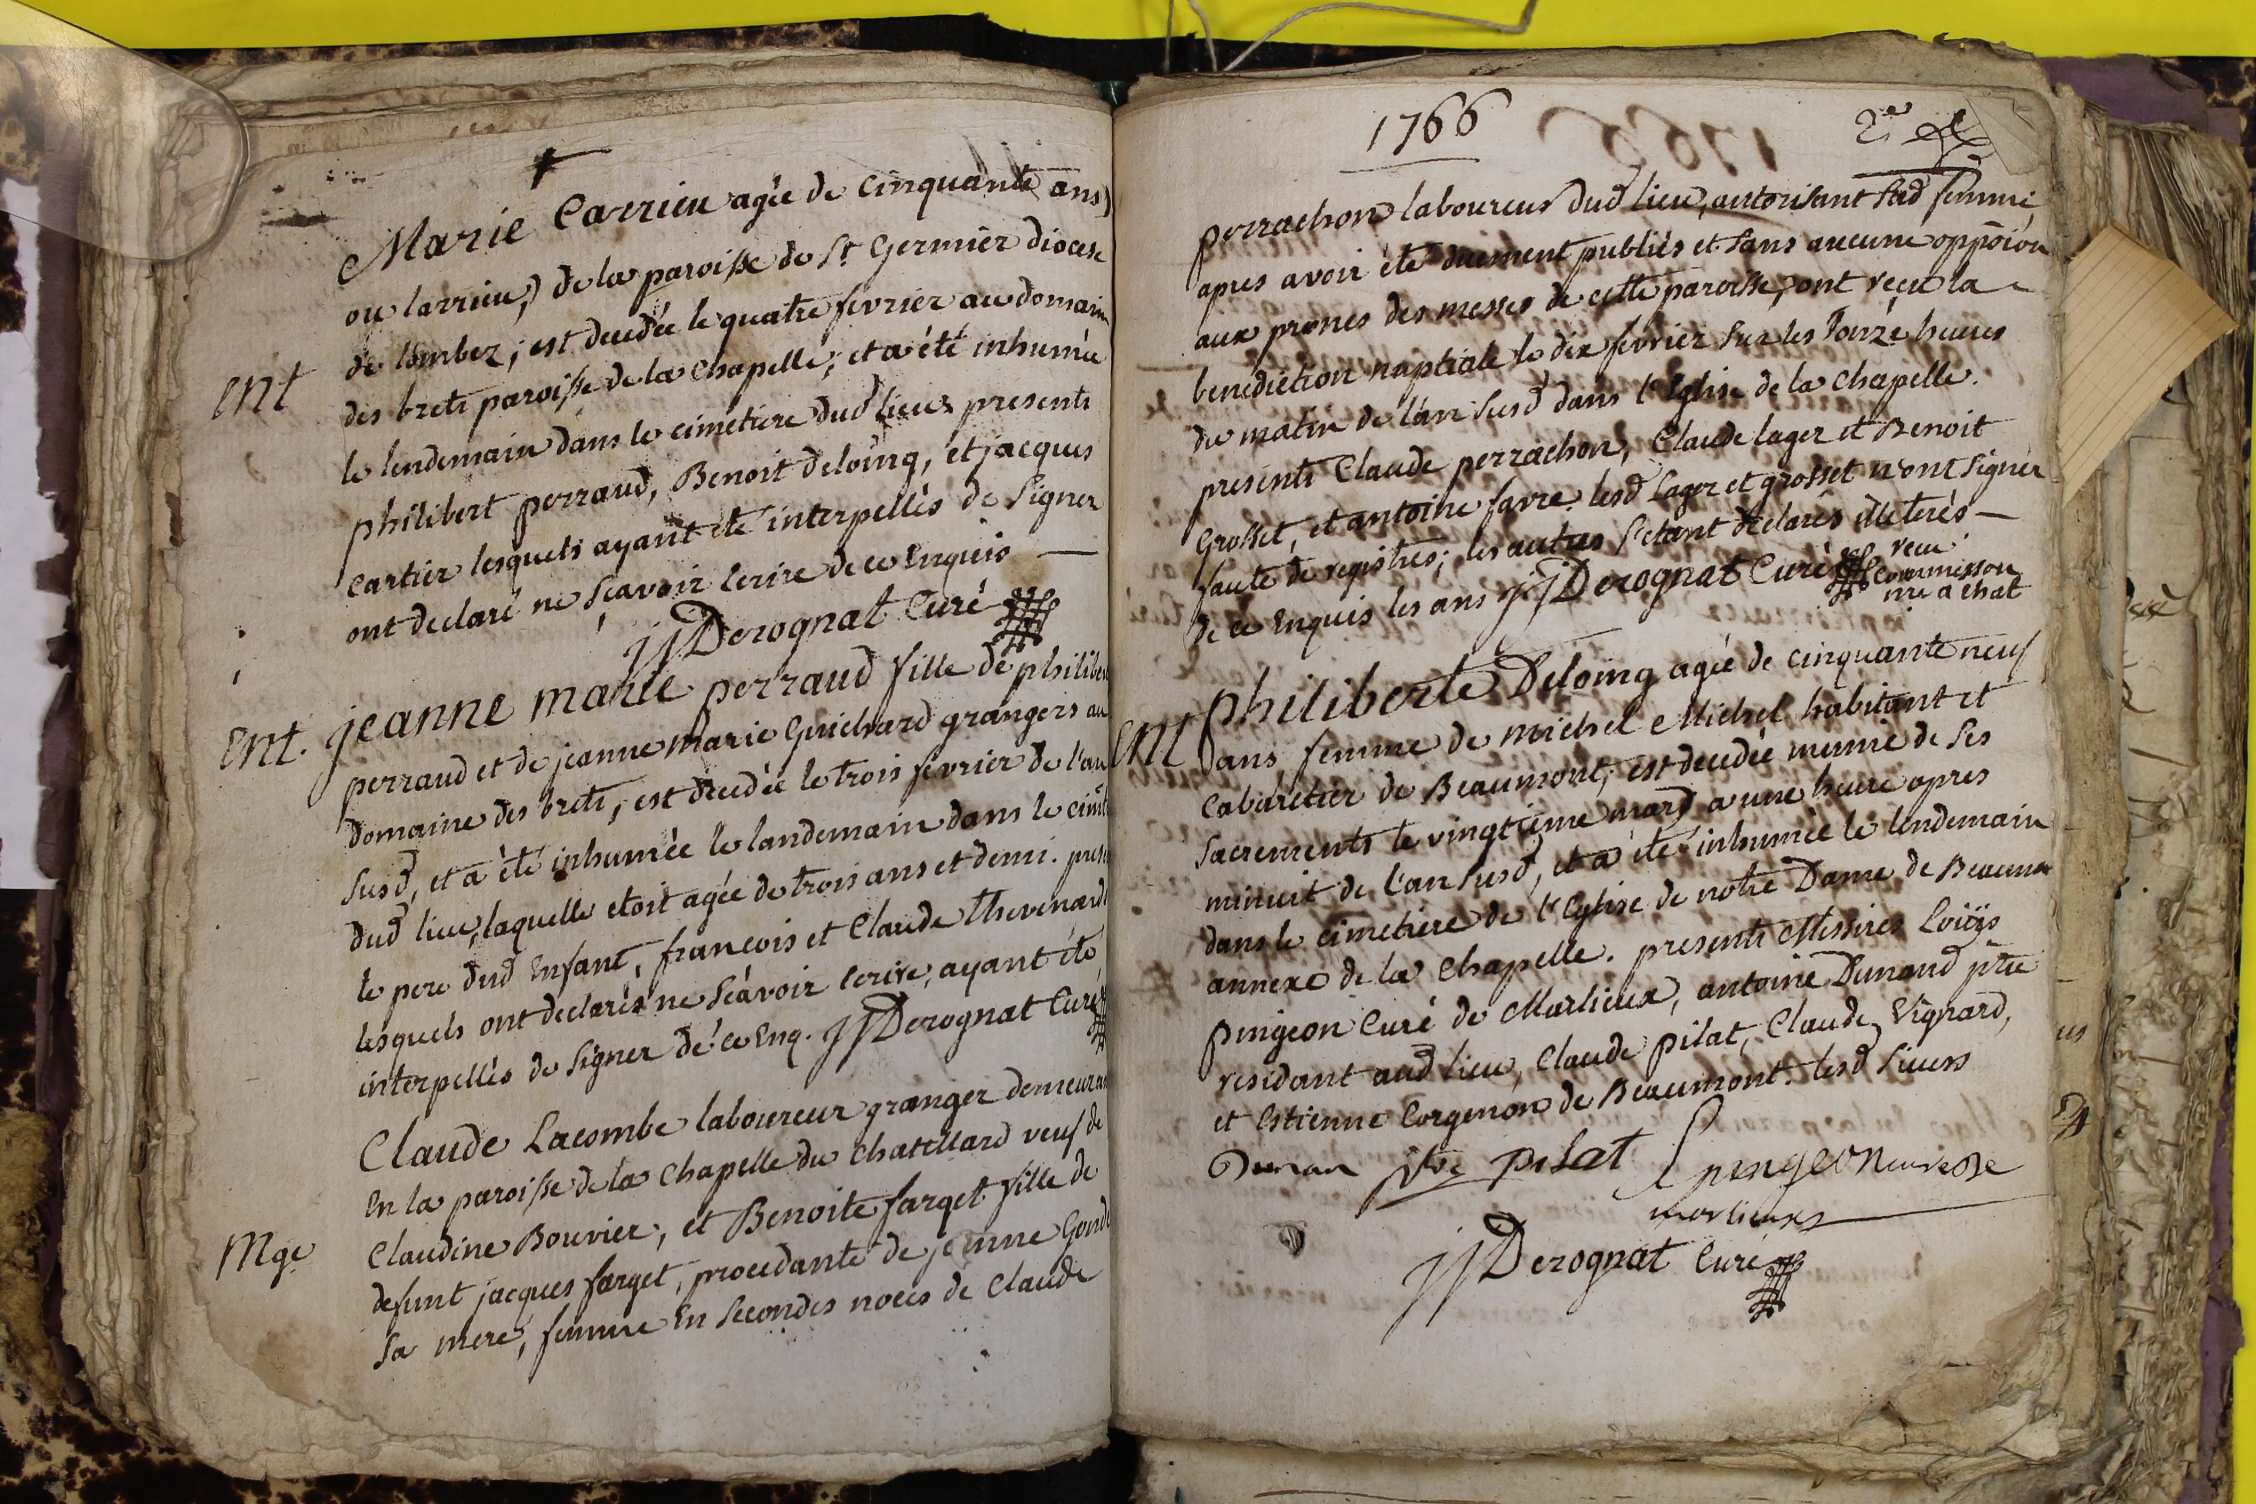 Marie Carrieu agée de Cinquante ans)
ou larrieu,) de la paroisse de St Germier diocese
ent
de lombez; est decedée le quatre fevrier au domaine
des brets paroisse de la Chapelle; et a été inhumée
le lendemain dans le cimetiere dud lieu, presents
philibert perraud, Benoit Deloing, et jacques
Cartier lesquels ayant été interpellés de Signer
ont declaré ne Sçavoir Ecrire de ce Enquis —
jj Derognat Curé
Ent. jeanne marie perraud fille de philibert
perraud et de jeanne marie Guichard grangers au
Domaine des brets, est decedée le trois fevrier de l'an
Susd, et a été inhumée le landemain dans le cimet
dud lieu, laquelle etoit agée de trois ans et demi. pres
le pere dud Enfant, francois et Claude Thevenard
lesquels ont declarés ne Sçavoir Ecrire, ayant été
interpellés de Signer de ce Enq. jj Derognat Curé
Claude Lacombe laboureur granger demeurant
En la paroisse de la Chapelle du Chatellard veuf de
Mge
Claudine Bouvier, et Benoite farget fille de
defunt jacques farget, procedante de jeanne Gond
Sa mere, femme En Secondes noces de Claude
1766
2e
perrachon laboureur dud lieu, autorisant Sad femme
apres avoir été duement publiés et Sans aucune oppoïon
aux prones des messes de cette paroisse, ont reçu la
benediction nuptiale le dix fevrier Sur les onze heures
du matin de l'an Susd dans l'Eglise de la Chapelle.
presents Claude perrachon, Claude lager et Benoit
Grosset, et antoine favre. lesd Lager et grosset n'ont Signer
faute de registres; les autres S'etant declarés illeterés —
de ce Enquis les ans jj Derognat Curé
reçu
Commission
pre a chat
ent
philiberte Deloing agée de cinquante neuf
ans femme de michel Michel habitant et
Cabaretier de Beaumont, est decedée munie de Ses
Sacrements le vingtième mars a une heure apres
minuit de l'an Susd, et a été inhumée le lendemain
dans le cimetiere de l'Eglise de notre Dame de Beaumont
annexe de la Chapelle. presents Messires Loüys
pingeon Curé de Marlieux, antoine Dunand ptre
residant aud lieu, Claude pilat, Claude Vignard,
et Estienne Corgenon de Beaumont. lesd Sieurs
Dunan ptre pilat pingeon curé de
marlieux
jj Derognat Curé